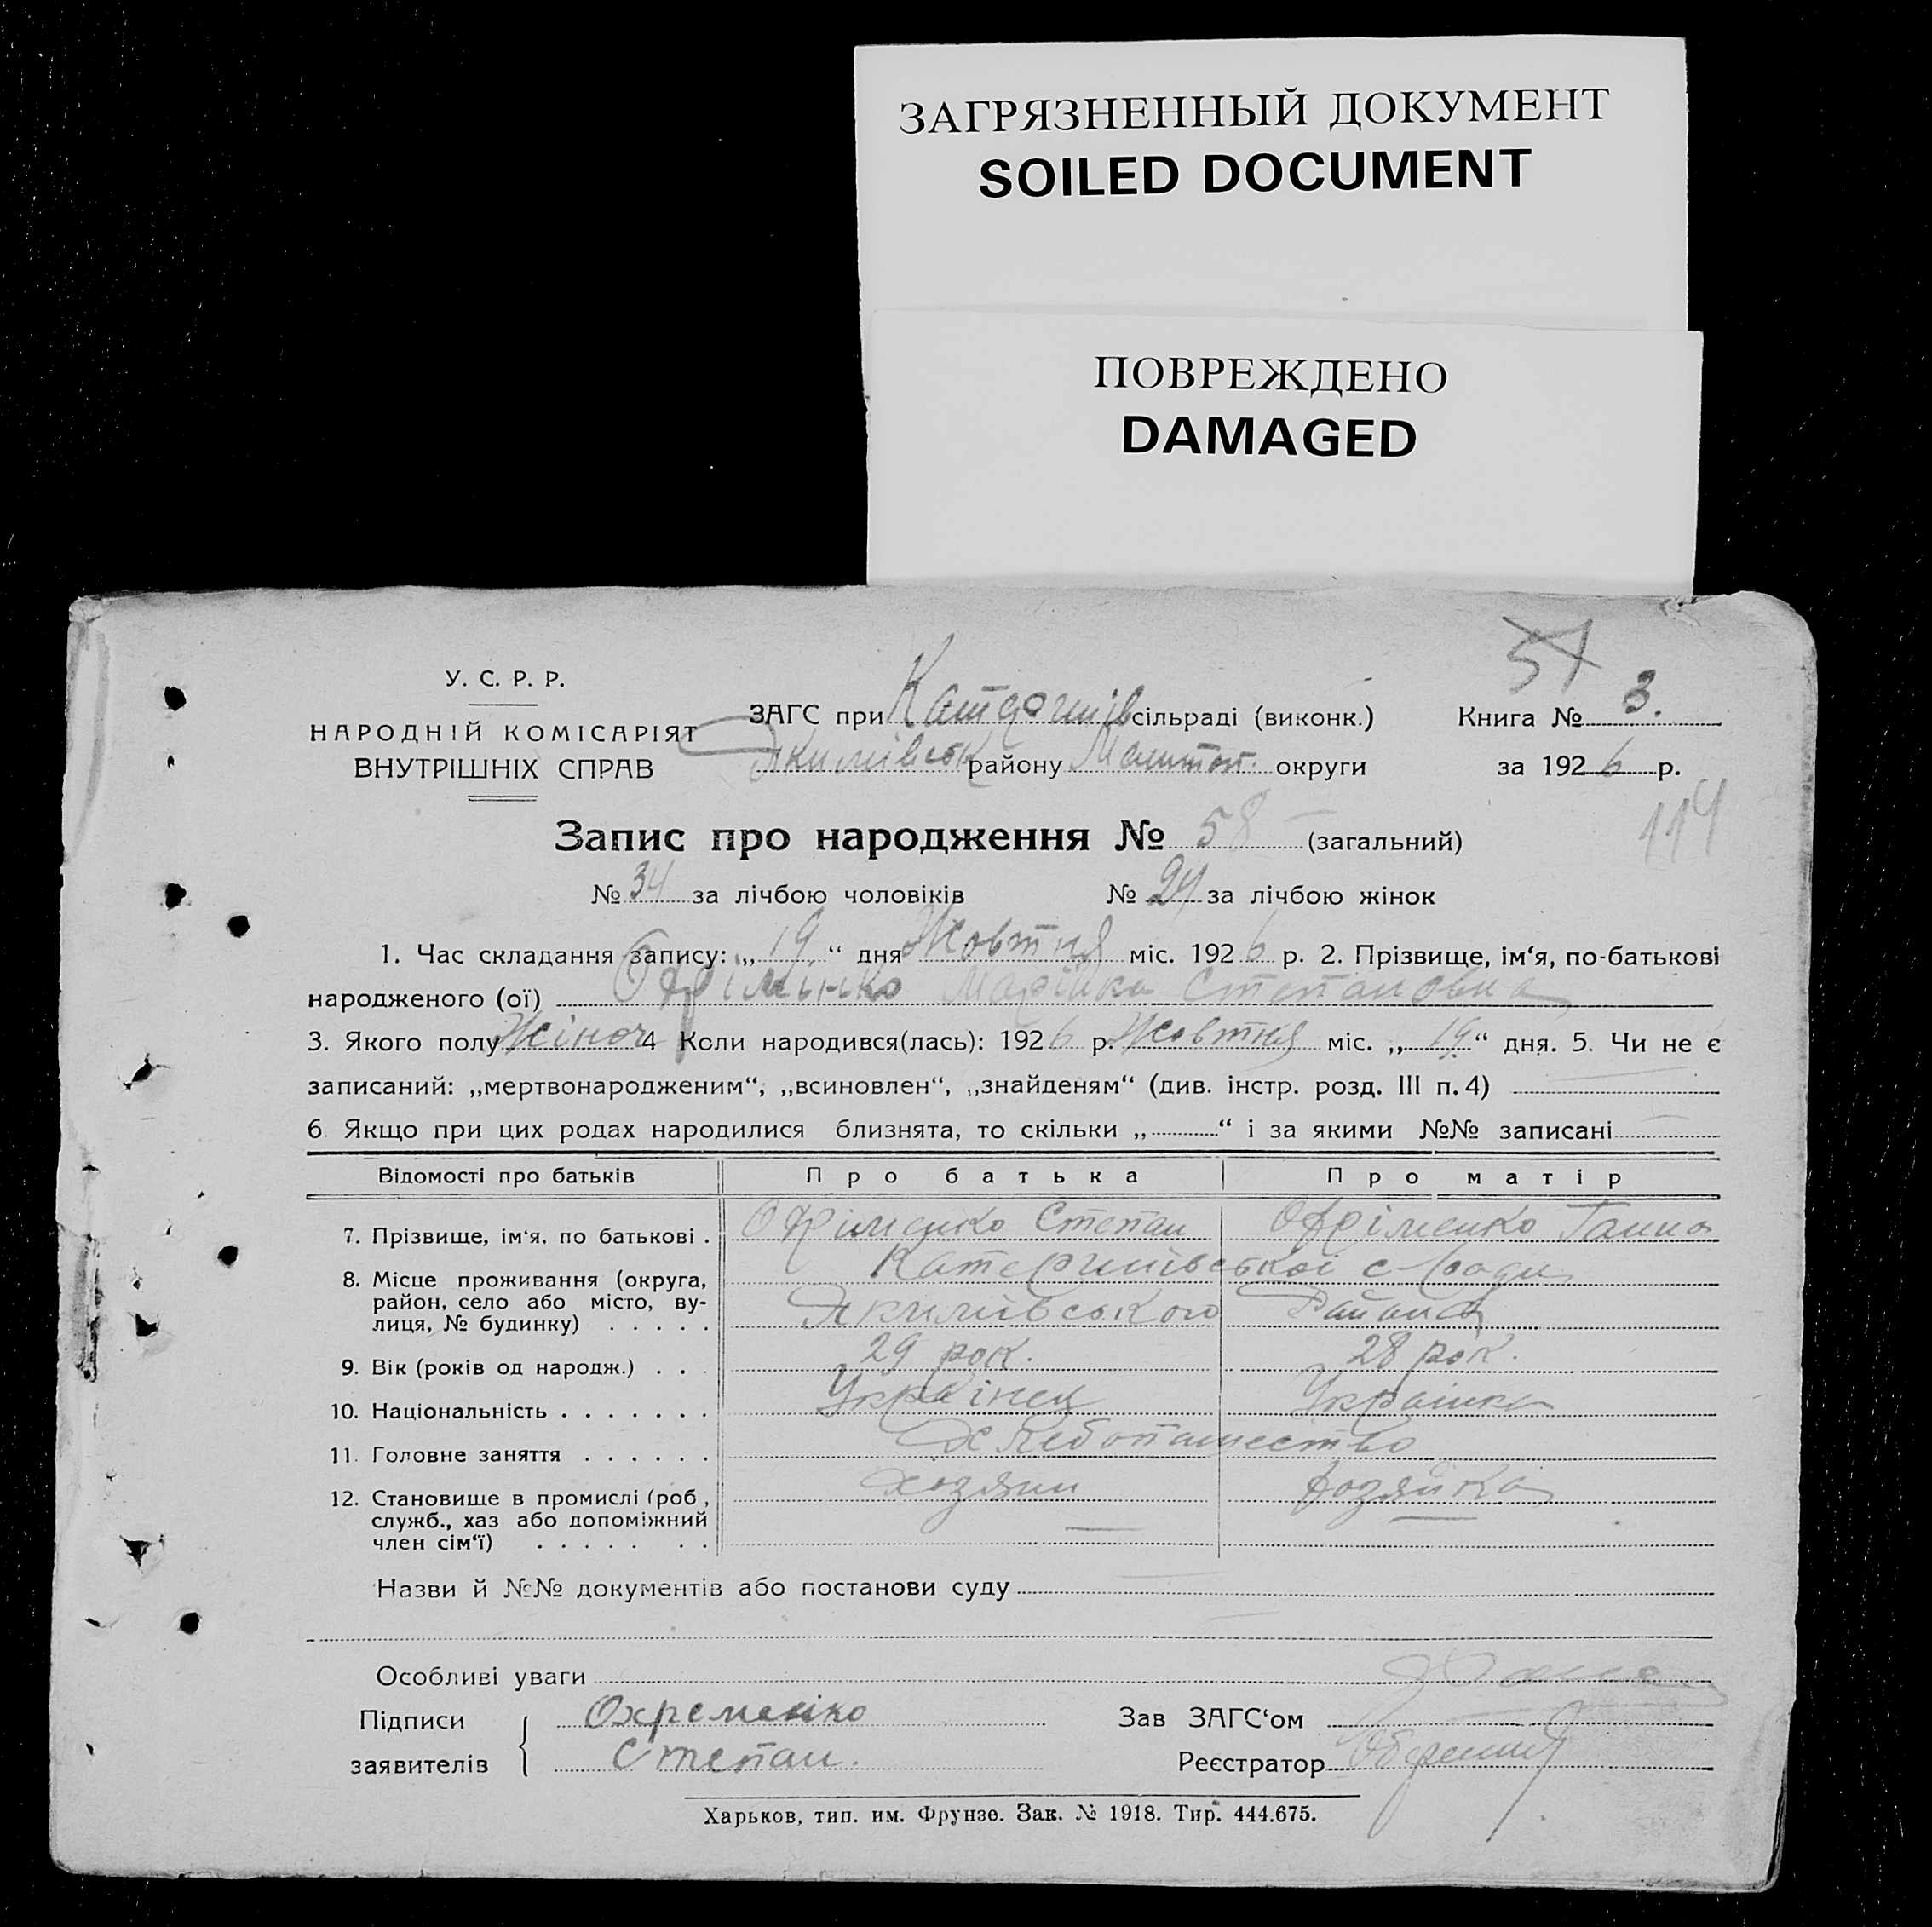 ЗАГРЯЗНЕННЫЙ ДОКУМЕНТ
SOILED DOCUMENT
ПОВРЕЖДЕНО
DAMAGED
57
У. С. Р. Р.
НАРОДНІЙ КОМІСАРІЯТ
ВНУТРІШНІХ СПРАВ
ЗАГС при сільраді (виконк.) Книга № 3.
Якимівськ району Мелитоп. округи за 1926 р.
114
Запис про народження № 58 (загальний)
№ 34 за лічбою чоловіків № 24 за лічбою жінок
1. Час складання запису: „19“ дня Жовтня міс. 1926 р. 2. Прізвище, ім‘я, по-батькові
народженого (ої) Офріменко Марійка Степановна
3. Якого полу Жіноч 4 Коли народився(лась): 1926 р. Жовтня міс. „19“ дня. 5. Чи не є
записаний: „мертвонародженим“, „всиновлен“, „знайденям“ (див. інстр. розд. III п. 4)
6. Якщо при цих родах народилися близнята, то скільки „ “ і за якими №№ записані
Відомості про батьків Про батька Про матір
7. Прізвище, ім‘я. по батькові . Офріменко Степан Офріменко Ганна
8. Місце проживання (округа, Катеринівської с-ради
район, село або місто, ву- Якимівського Района
лиця, № будинку) . . . . .
9. Вік (років од народж.) . . . 29 рок. 28 рок.
10. Національність . . . . . . . Українец Украінка
11. Головне заняття . . . . . . Хлебопашество
12. Становище в промислі (роб., хозяин хозяйка
служб., хаз або допоміжний
член сім‘ї) . . . . . . .
Назви й №№ документів або постанови суду
Особливі уваги
Підписи Охременко Зав ЗАГС‘ом
заявителів Степан. Реєстратор
Харьков, тип. им. Фрунзе. Зак. № 1918. Тир. 444.675.